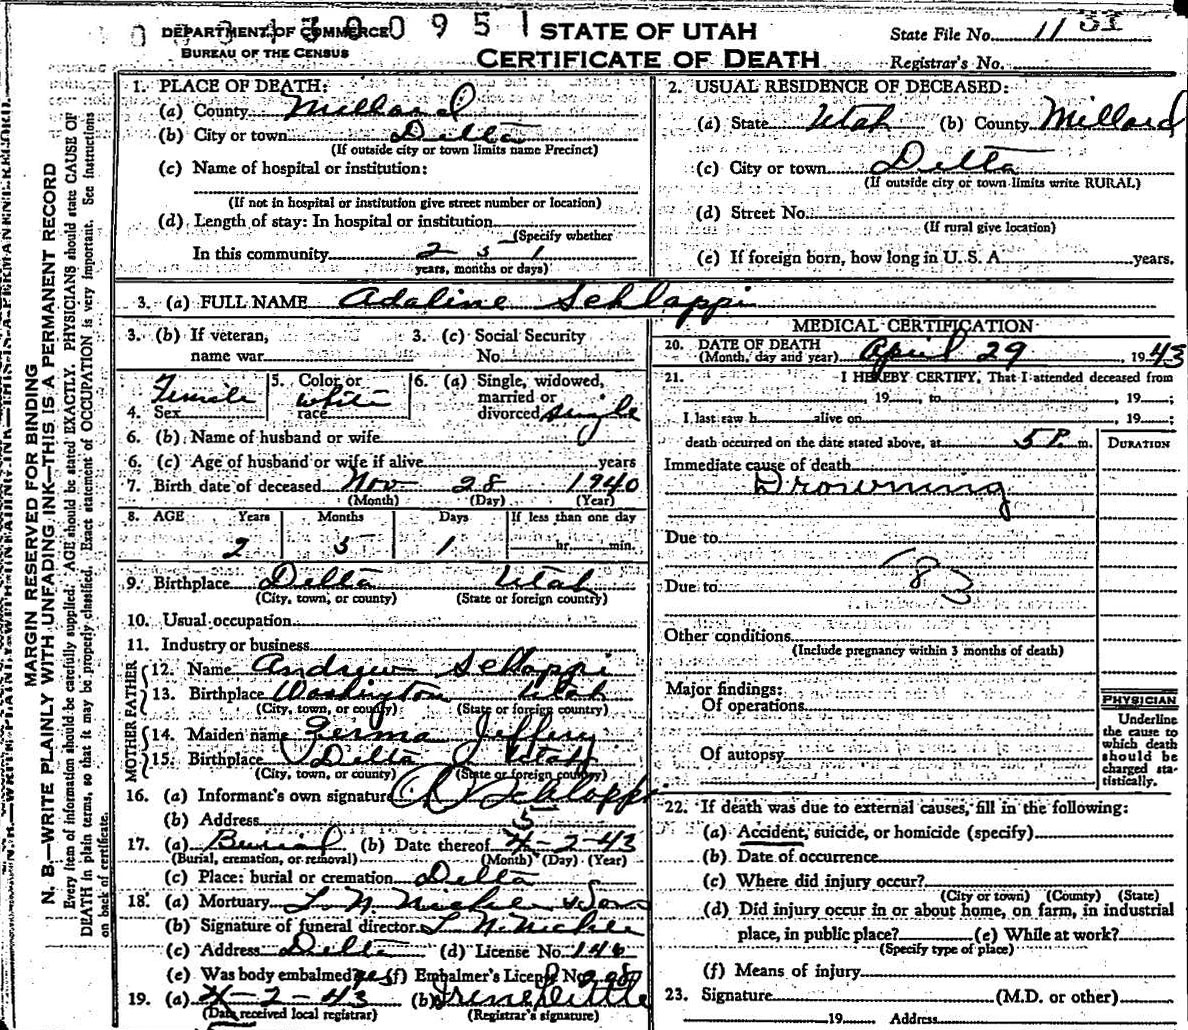 DEPARTMENT OF COMMERCE 0 9 5 1 STATE OF UTAH State File No. 11 31
BUREAU OF THE CENSUS CERTIFICATE OF DEATH Registrar's No.
MARGIN RESERVED FOR BINDING
N. B.—WRITE PLAINLY WITH UNFADING INK—THIS IS A PERMANENT RECORD
Every item of information should be carefully supplied. AGE should be stated EXACTLY. PHYSICIANS should state CAUSE OF
DEATH in plain terms, so that it may be properly classified. Exact statement of OCCUPATION is very important. See Instructions
on back of certificate.
1. PLACE OF DEATH:
(a) County Millard
(b) City or town Delta
(If outside city or town limits name Precinct)
(c) Name of hospital or institution:
(If not in hospital or institution give street number or location)
(d) Length of stay: In hospital or institution
(Specify whether
In this community 2 5 1
years, months or days)
2. USUAL RESIDENCE OF DECEASED:
(a) State Utah (b) County Millard
(c) City or town Delta
(If outside city or town limits write RURAL)
(d) Street No.
(If rural give location)
(e) If foreign born, how long in U. S. A. years.
3. (a) FULL NAME Adaline Schlappi
3. (b) If veteran, 3. (c) Social Security
name war No.
4. Sex Female 5. Color or race white 6. (a) Single, widowed, married or divorced single
6. (b) Name of husband or wife
6. (c) Age of husband or wife if alive years
7. Birth date of deceased Nov 28 1940
(Month) (Day) (Year)
8. AGE Years Months Days If less than one day
2 5 1 hr. min.
9. Birthplace Delta Utah
(City, town, or county) (State or foreign country)
10. Usual occupation
11. Industry or business
FATHER
12. Name Andrew Schlappi
13. Birthplace Washington Utah
(City, town, or county) (State or foreign country)
MOTHER
14. Maiden name Jeffery
15. Birthplace Delta Utah
(City, town, or county) (State or foreign country)
16. (a) Informant's own signature Schlappi
(b) Address
17. (a) Burial (b) Date thereof 5-2-43
(Burial, cremation, or removal) (Month) (Day) (Year)
(c) Place: burial or cremation Delta
18. (a) Mortuary
(b) Signature of funeral director
(c) Address Delta (d) License No. 146
(e) Was body embalmed? yes (f) Embalmer's License No.
19. (a) 4-2-43 (b) Irene
(Date received local registrar) (Registrar's signature)
5
MEDICAL CERTIFICATION
20. DATE OF DEATH
(Month, day and year) April 29, 1943
21. I HEREBY CERTIFY, That I attended deceased from
, 19 , to , 19 ;
I last saw h alive on , 19 ;
death occurred on the date stated above, at 5 P. m. DURATION
Immediate cause of death
Drowning
Due to
183
Due to
Other conditions
(Include pregnancy within 3 months of death)
Major findings:
Of operations
Of autopsy
PHYSICIAN
Underline
the cause to
which death
should be
charged sta-
tistically.
22. If death was due to external causes, fill in the following:
(a) Accident, suicide, or homicide (specify)
(b) Date of occurrence
(c) Where did injury occur?
(City or town) (County) (State)
(d) Did injury occur in or about home, on farm, in industrial
place, in public place? (e) While at work?
(Specify type of place)
(f) Means of injury
23. Signature (M.D. or other)
19 Address